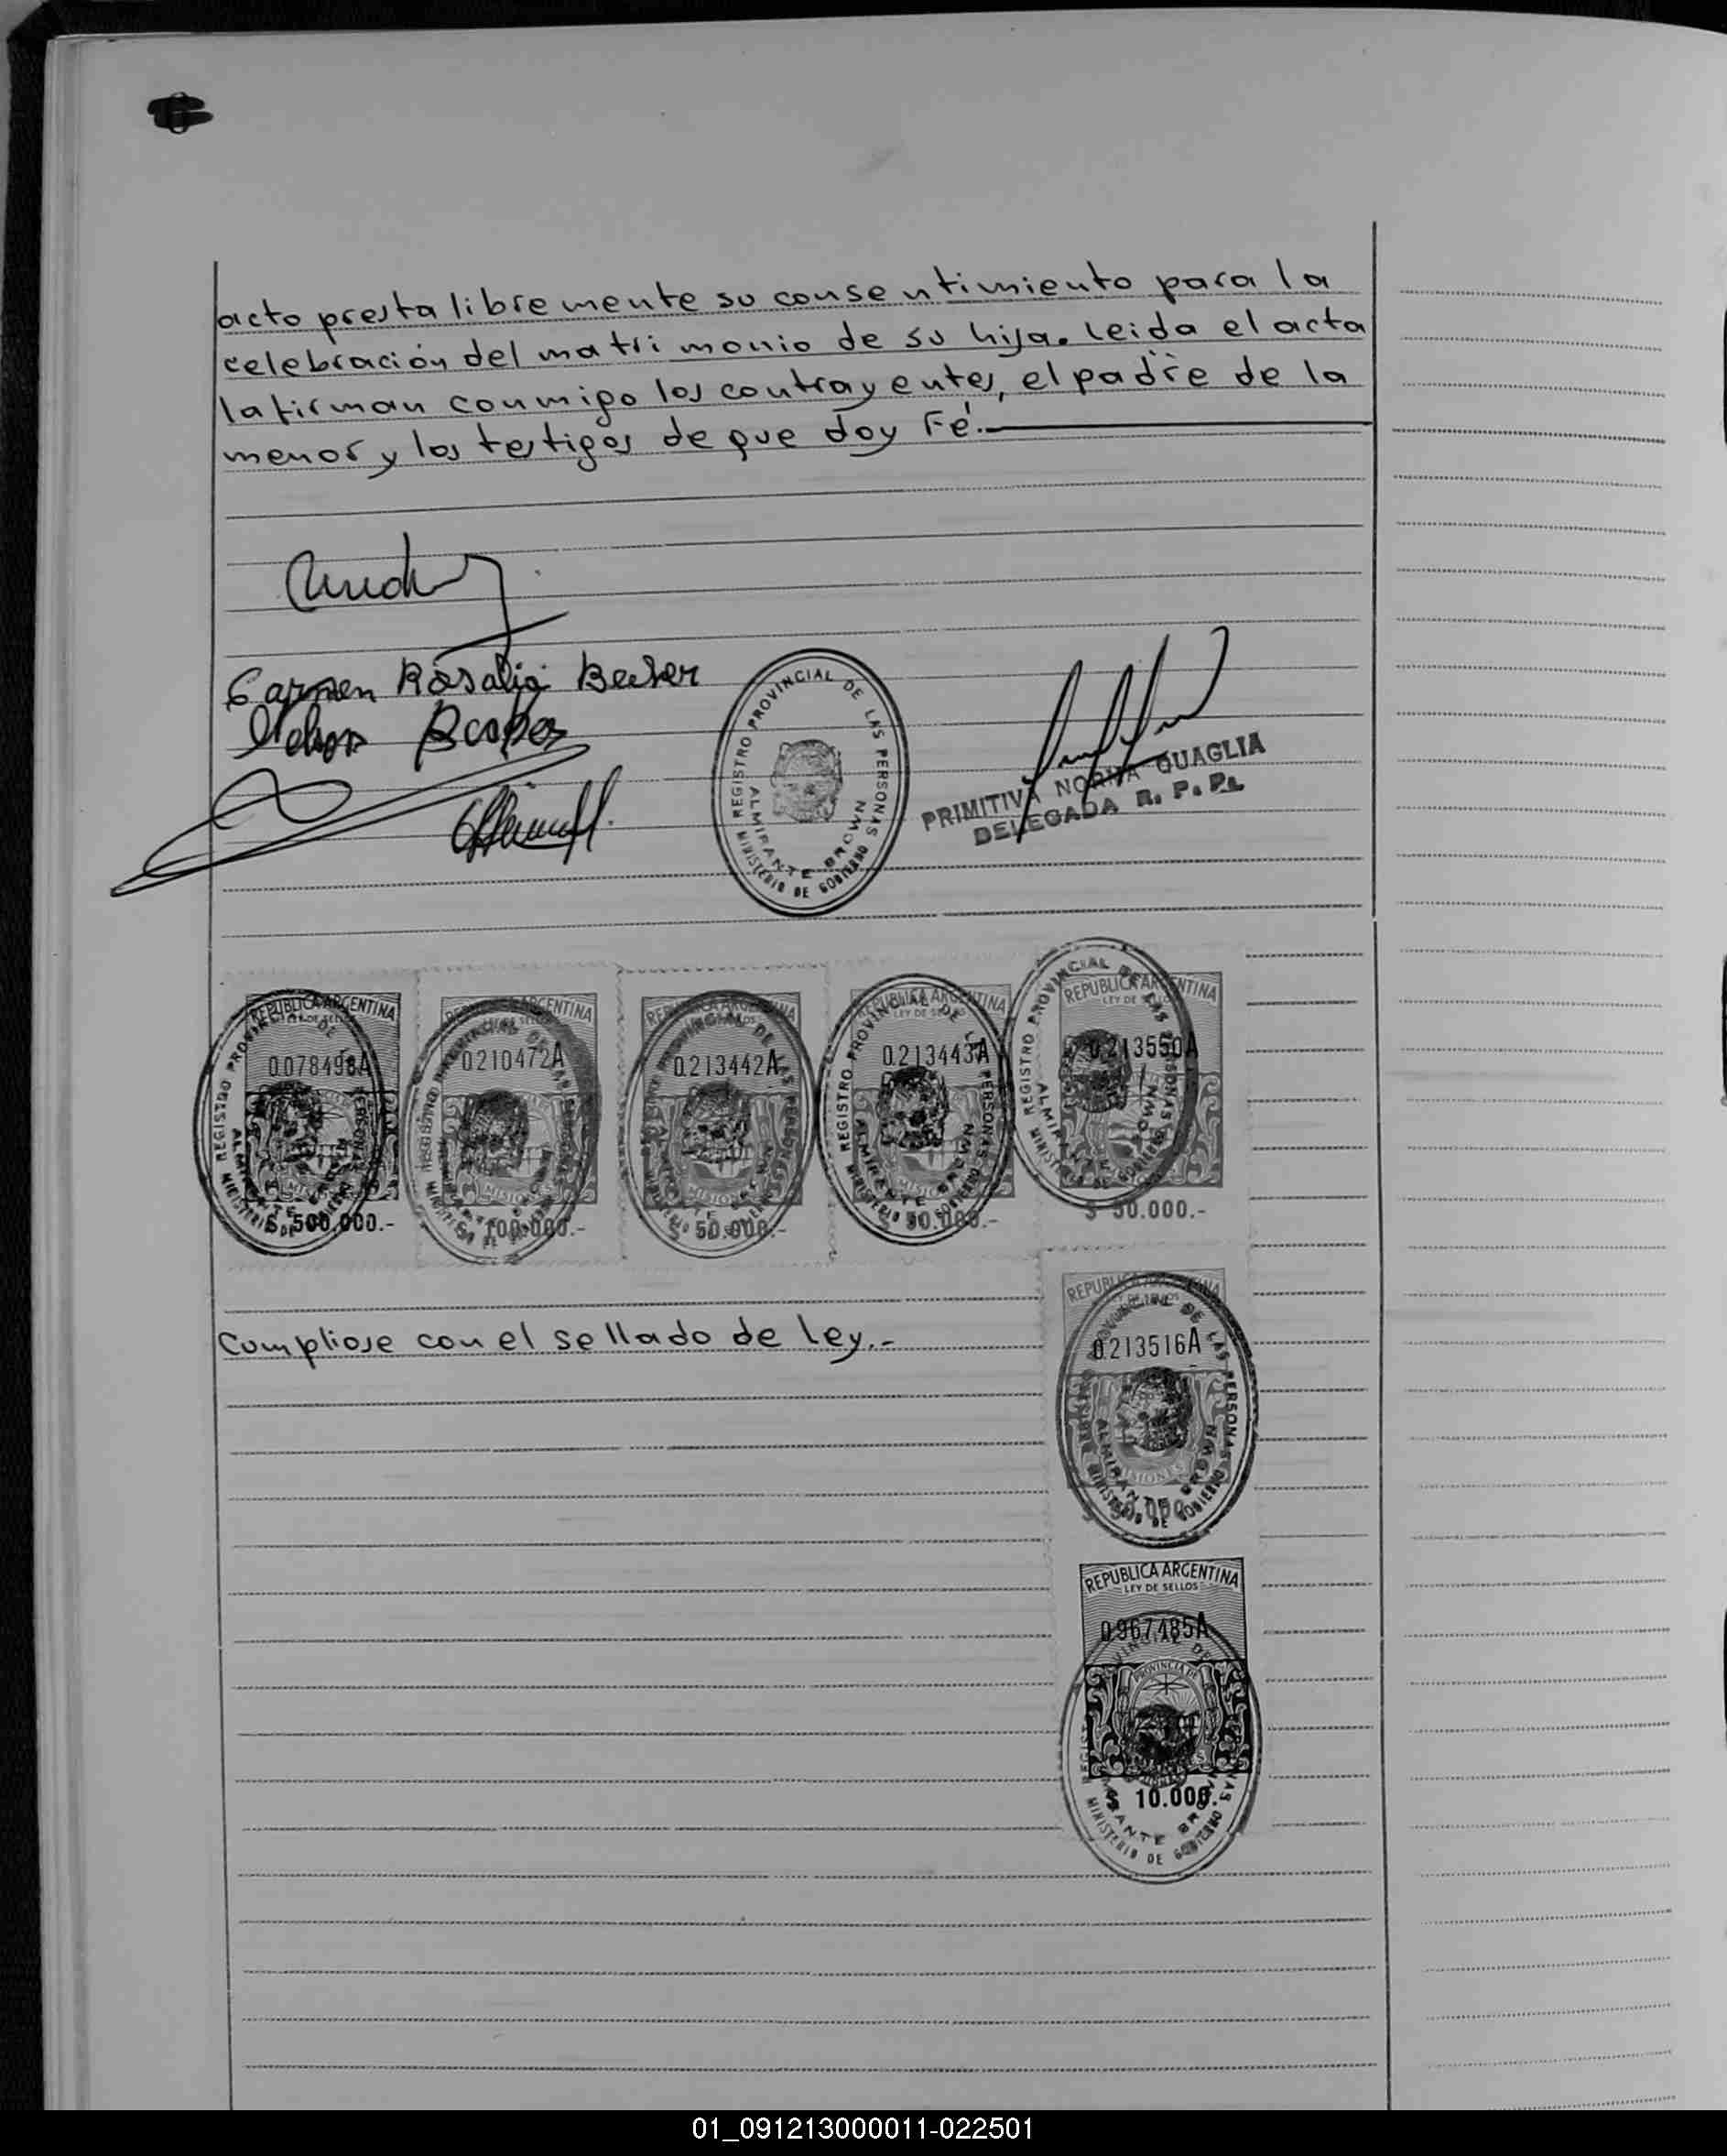 acto presta libremente su consentimiento para la
celebración del matrimonio de su hija. leida el acta
la firman conmigo los contrayentes, el padre de la
menor y los testigos de que doy Fé.
Carmen Rosalia Becker
REGISTRO PROVINCIAL DE LAS PERSONAS
ALMIRANTE BROWN
MINISTERIO DE GOBIERNO
PRIMITIVA NORMA QUAGLIA
DELEGADA R. P. P.
REPUBLICA ARGENTINA
0.078498A
$ 500.000.-
REPUBLICA ARGENTINA
0.210472A
MISIONES
$ 100.000.-
REPUBLICA ARGENTINA
0.213442A
MISIONES
$ 50.000.-
REPUBLICA ARGENTINA
LEY DE SELLOS
0.213443A
MISIONES
$ 50.000.-
REPUBLICA ARGENTINA
LEY DE SELLOS
0.213550A
$ 50.000.-
REPUBLICA ARGENTINA
0.213516A
MISIONES
Cumpliose con el sellado de ley.-
REPUBLICA ARGENTINA
LEY DE SELLOS
0.967485A
PROVINCIA DE
10.000.-
01_091213000011-022501